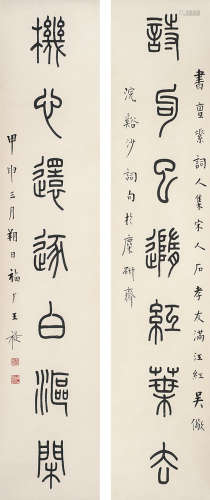 書亶素詞人集宋人石孝友滿江紅吳儆
詩句已隨紅葉去
浣谿沙詞句於麋研齋
機心還逐白漚閑
甲申三月朔日福厂王禔